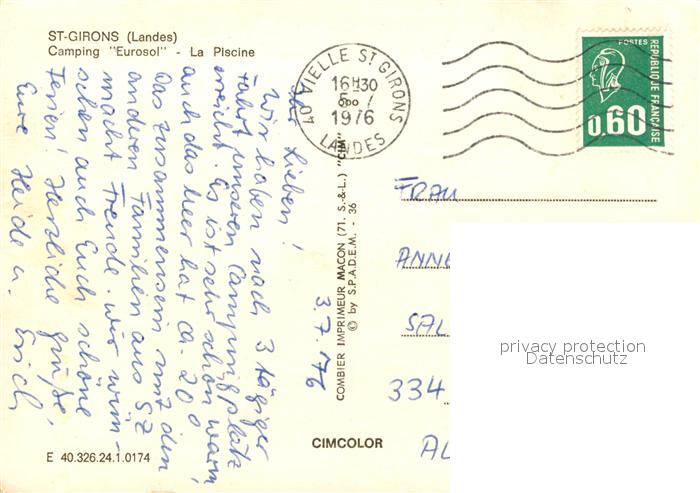 ST-GIRONS (Landes)
Camping "Eurosol" - La Piscine
40 VIELLE ST GIRONS
16H30
5 - 7
1976
LANDES
POSTES
REPUBLIQUE FRANÇAISE
0.60
3.7.76
Lieben!
Wir haben nach 3 tägiger
Fahrt unseren Campingplatz
erreicht. Es ist sehr schön warm,
auch das Meer hat ca. 20°
Das Zusammensein mit den
anderen Familien aus SZ
macht Freude. Wir wün-
schen auch Euch schöne
Ferien! Herzliche Grüße,
Eure Heide u. Erich
COMBIER IMPRIMEUR MACON (71. S.-&-L.) "CIM"
© by S.P.A.D.E.M. - 36
FRAU
ANNE
SAL
334
AL
privacy protection
Datenschutz
CIMCOLOR
E 40.326.24.1.0174